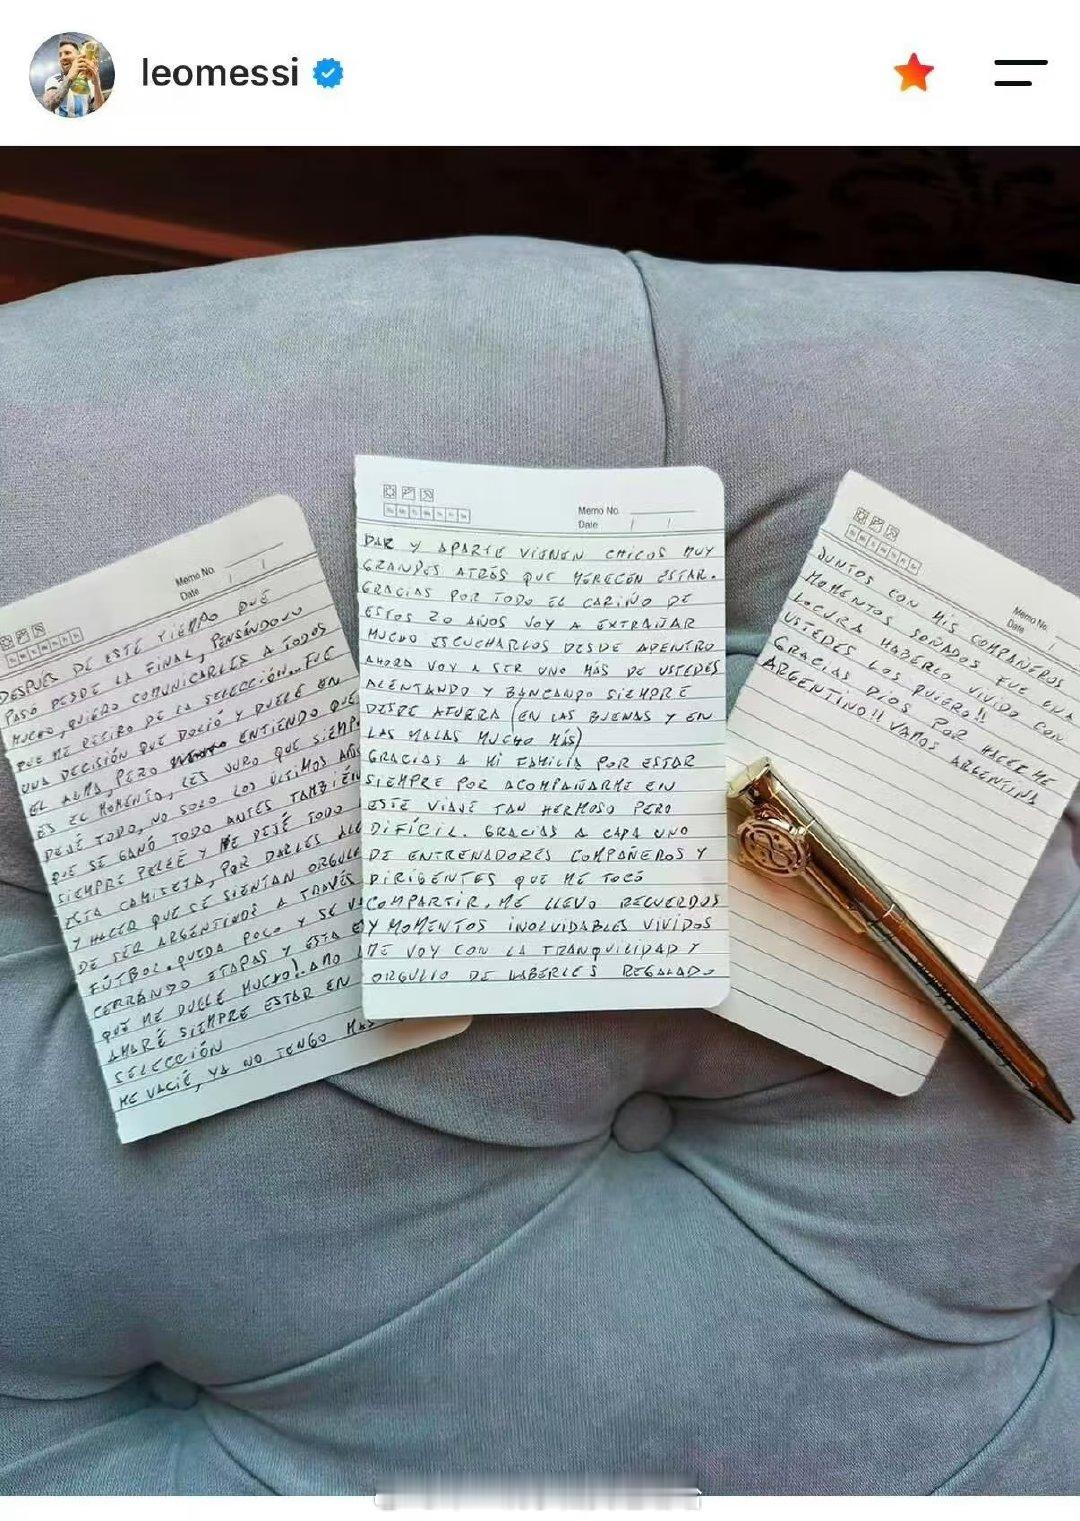 leomessi
Memo No.
Date / /
DESPUÉS DE ESTE TIEMPO QUE
PASÓ DESDE LA FINAL, PENSÁNDOLO
MUCHO, QUIERO COMUNICARLES A TODOS
QUE ME RETIRO DE LA SELECCIÓN... FUE
UNA DECISIÓN QUE DOLIÓ Y DUELE EN
EL ALMA, PERO ENTIENDO QUE
ES EL MOMENTO, LES JURO QUE SIEMP
DEJÉ TODO, NO SOLO LOS ÚLTIMOS AÑOS
QUE SE GANÓ TODO ANTES TAMBIÉN
SIEMPRE PELEÉ Y ME DEJÉ TODO
ESTA CAMISETA, POR DARLES ALE
Y HACER QUE SE SIENTAN ORGULL
DE SER ARGENTINOS A TRAVÉS
FÚTBOL. QUEDA POCO Y SE V
CERRANDO ETAPAS Y ESTA E
QUE ME DUELE MUCHO! AMO
AMARÉ SIEMPRE ESTAR EN
SELECCIÓN
ME VACIÉ, YA NO TENGO MAS
Memo No.
Date / /
DAR Y APARTE VIENEN CHICOS MUY
GRANDES ATRÁS QUE MERECEN ESTAR.
GRACIAS POR TODO EL CARIÑO DE
ESTOS 20 AÑOS VOY A EXTRAÑAR
MUCHO ESCUCHARLOS DESDE ADENTRO
AHORA VOY A SER UNO MÁS DE USTEDES
ALENTANDO Y BANCANDO SIEMPRE
DESDE AFUERA (EN LAS BUENAS Y EN
LAS MALAS MUCHO MÁS)
GRACIAS A MI FAMILIA POR ESTAR
SIEMPRE POR ACOMPAÑARME EN
ESTE VIAJE TAN HERMOSO PERO
DIFÍCIL. GRACIAS A CADA UNO
DE ENTRENADORES COMPAÑEROS Y
DIRIGENTES QUE ME TOCÓ
COMPARTIR. ME LLEVO RECUERDOS
Y MOMENTOS INOLVIDABLES VIVIDOS
ME VOY CON LA TRANQUILIDAD Y
ORGULLO DE HABERLES REGALADO
Memo No.
Date /
JUNTOS CON MIS COMPAÑEROS
MOMENTOS SOÑADOS FUE UNA
LOCURA HABERLO VIVIDO CON
USTEDES LOS QUIERO!!
GRACIAS DIOS POR HACERME
ARGENTINO!! VAMOS ARGENTINA